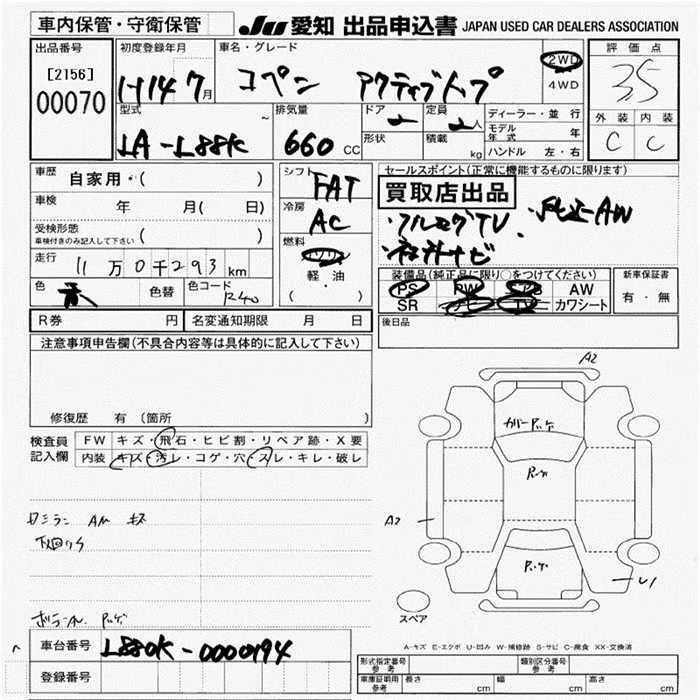 車内保管・守衛保管
JU 愛知 出品申込書 JAPAN USED CAR DEALERS ASSOCIATION
出品番号
[2156]
00070
初度登録年月
H14 7月
車名・グレード
コペン アクティブトップ
2WD
4WD
評価点
3.5
外装 内装
C C
型式
LA-L880K
排気量
660 CC
ドア 2
定員 2人
形状
積載 kg
ディーラー・並行
モデル年式 年
ハンドル 左・右
車歴 自家用・( )
車検 年 月( 日)
受検形態
車検付きのみ記入して下さい ( )
走行 11万0千293km
色 色替 色コード R40
シフト FAT
冷房 AC
燃料
ガソリン
軽・油
( ・ )
セールスポイント(正常に機能するものに限ります)
買取店出品
・フルセグTV ・純正AW
・社外ナビ
装備品(純正品に限り○をつけてください)
PS PW AW
SR ナビ TV カワシート
新車保証書
有・無
R券 円 名変通知期限 月 日
後日品
注意事項申告欄(不具合内容等は具体的に記入して下さい)
修復歴 有 (箇所
検査員記入欄
FW キズ・飛石・ヒビ割・リペア跡・X要
内装 キズ・汚レ・コゲ・穴・スレ・キレ・破レ
AW キズ
下回りS
A2
A2
スペア
A-キズ E-エクボ U-凹み W-補修跡 S-サビ C-腐食 XX-交換済
車台番号 L880K-0000194
登録番号
形式指定番号 参考
類別区分番号 参考
車庫証明用 参考 長さ cm 幅 cm 高さ cm